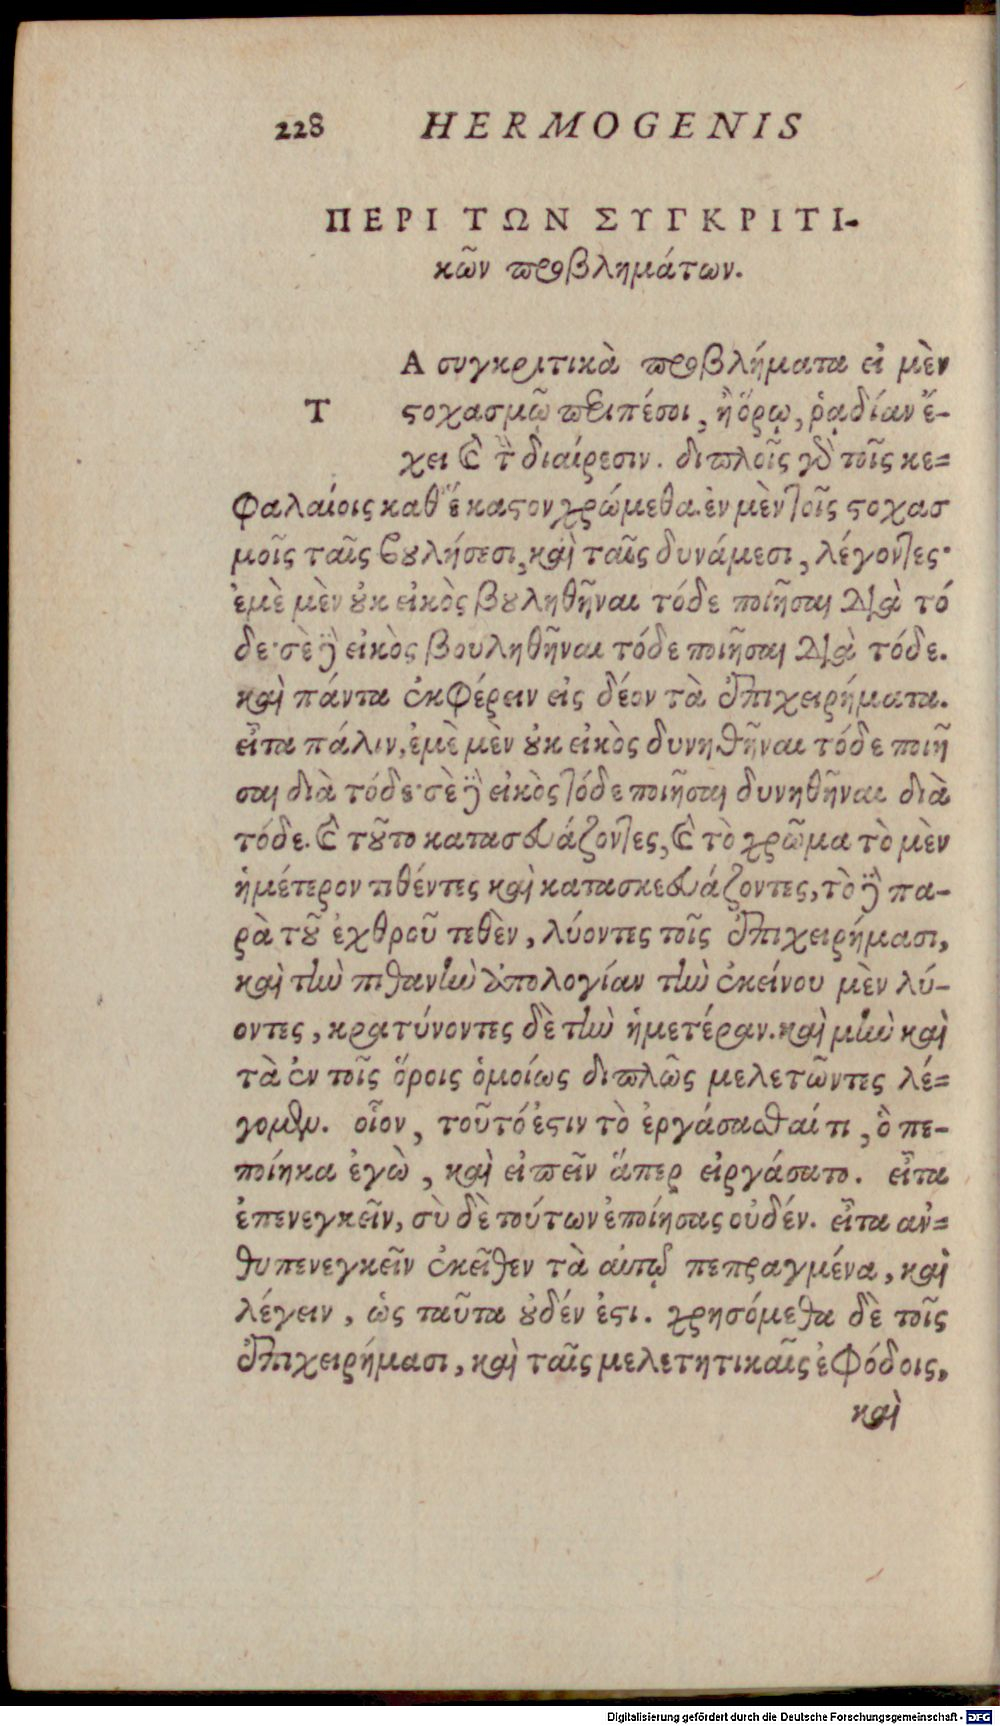 228 HERMOGENIS
ΠΕΡΙ ΤΩΝ ΣΥΓΚΡΙΤΙ-
κῶν προβλημάτων.
Α συγκριτικὰ προβλήματα εἰ μὲν
Τ στοχασμῷ περιπέσοι, ἢ ὅρῳ, ῥᾳδίαν ἔ-
χει καὶ τὴν διαίρεσιν. διπλοῖς γὰρ τοῖς κε=
φαλαίοις καθ' ἕκαστον χρώμεθα. ἐν μὲν τοῖς στοχασ
μοῖς ταῖς βουλήσεσι, καὶ ταῖς δυνάμεσι, λέγοντες·
ἐμὲ μὲν οὐκ εἰκὸς βουληθῆναι τόδε ποιῆσαι διὰ τό
δε· σὲ δὲ εἰκὸς βουληθῆναι τόδε ποιῆσαι διὰ τόδε.
καὶ πάντα ἐκφέρειν εἰς δέον τὰ ἐπιχειρήματα.
εἶτα πάλιν, ἐμὲ μὲν οὐκ εἰκὸς δυνηθῆναι τόδε ποιῆ
σαι διὰ τόδε· σὲ δὲ εἰκὸς τόδε ποιῆσαι δυνηθῆναι διὰ
τόδε. καὶ τοῦτο κατασευάζοντες, καὶ τὸ χρῶμα τὸ μὲν
ἡμέτερον τιθέντες καὶ κατασκευάζοντες, τὸ δὲ πα-
ρὰ τοῦ ἐχθροῦ τεθὲν, λύοντες τοῖς ἐπιχειρήμασι,
καὶ τὴν πιθανὴν ἀπολογίαν τὴν ἐκείνου μὲν λύ-
οντες, κρατύνοντες δὲ τὴν ἡμετέραν. καὶ μὴν καὶ
τὰ ἐν τοῖς ὅροις ὁμοίως διπλῶς μελετῶντες λέ=
γομεν. οἷον, τοῦτό ἐστιν τὸ ἐργάσασθαί τι, ὃ πε-
ποίηκα ἐγὼ, καὶ εἰπεῖν ἅπερ εἰργάσατο. εἶτα
ἐπενεγκεῖν, σὺ δὲ τούτων ἐποίησας οὐδέν. εἶτα ἀν=
θυπενεγκεῖν ἐκεῖθεν τὰ αὐτῷ πεπραγμένα, καὶ
λέγειν, ὡς ταῦτα οὐδέν ἐστι. χρησόμεθα δὲ τοῖς
ἐπιχειρήμασι, καὶ ταῖς μελετητικαῖς ἐφόδοις,
καὶ
Digitalisierung gefördert durch die Deutsche Forschungsgemeinschaft - DFG